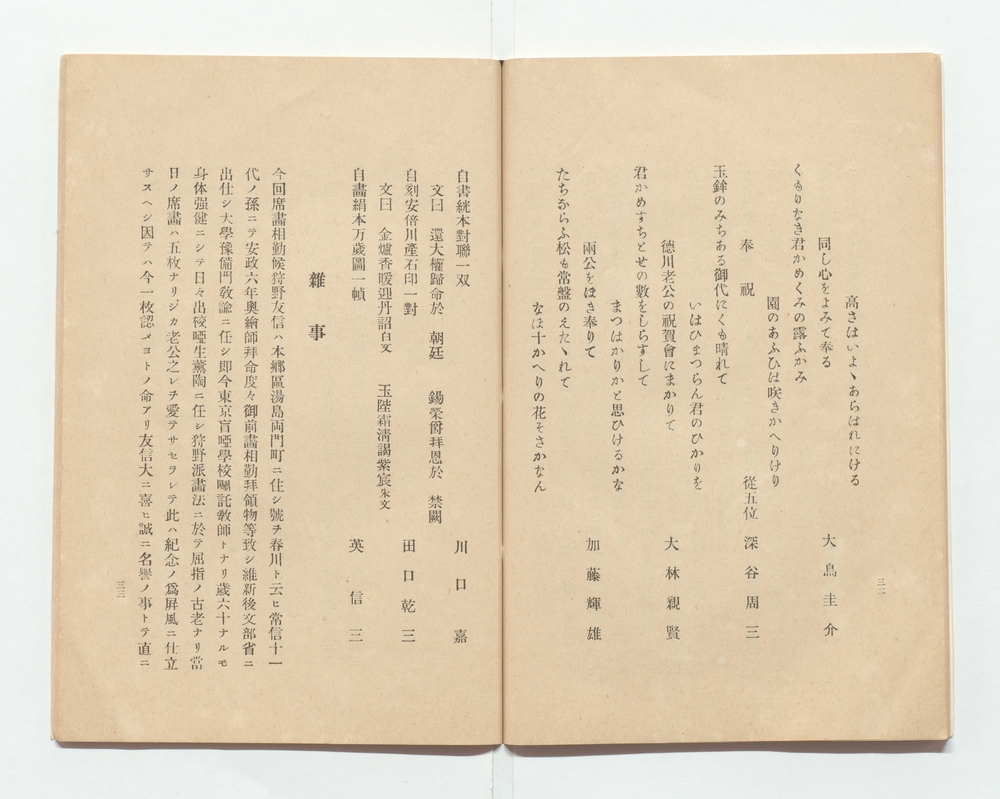 高さはいよゝあらはれにける
同し心をよみて奉る　大鳥圭介
くもりなき君かめくみの露ふかみ
園のあふひは咲きかへりけり
奉祝　從五位　深谷周三
玉鉾のみちある御代にくも晴れて
いはひまつらん君のひかりを
德川老公の祝賀會にまかりて　大林親賢
君かめすちとせの數をしらすして
まつはかりかと思ひけるかな
兩公をほき奉りて　加藤輝雄
たちならふ松も常盤のえたゝれて
なほ十かへりの花そさかなん
三二
自書絖本對聯一双　川口嘉
文曰　還大權歸命於　朝廷　錫榮爵拜恩於　禁闕
自刻安倍川產石印一對　田口乾三
文曰　金爐香暖迎丹詔白文　玉陛霜淸謁紫宸朱文
自畵絹本万歲圖一幀　英信三
雜事
今回席畵相勤候狩野友信ハ本鄕區湯島両門町ニ住シ號ヲ春川ト云ヒ常信十一
代ノ孫ニテ安政六年奥繪師拜命度々御前畵相勤拜領物等致シ維新後文部省ニ
出仕シ大學豫備門敎諭ニ任シ即今東京盲啞學校囑託敎師トナリ歲六十ナルモ
身体强健ニシテ日々出校啞生薰陶ニ任シ狩野派畵法ニ於テ屈指ノ古老ナリ當
日ノ席畵ハ五枚ナリシカ老公之レヲ愛テサセラレテ此ハ紀念ノ爲屛風ニ仕立
サスヘシ因テハ今一枚認メヨトノ命アリ友信大ニ喜ヒ誠ニ名譽ノ事トテ直ニ
三三